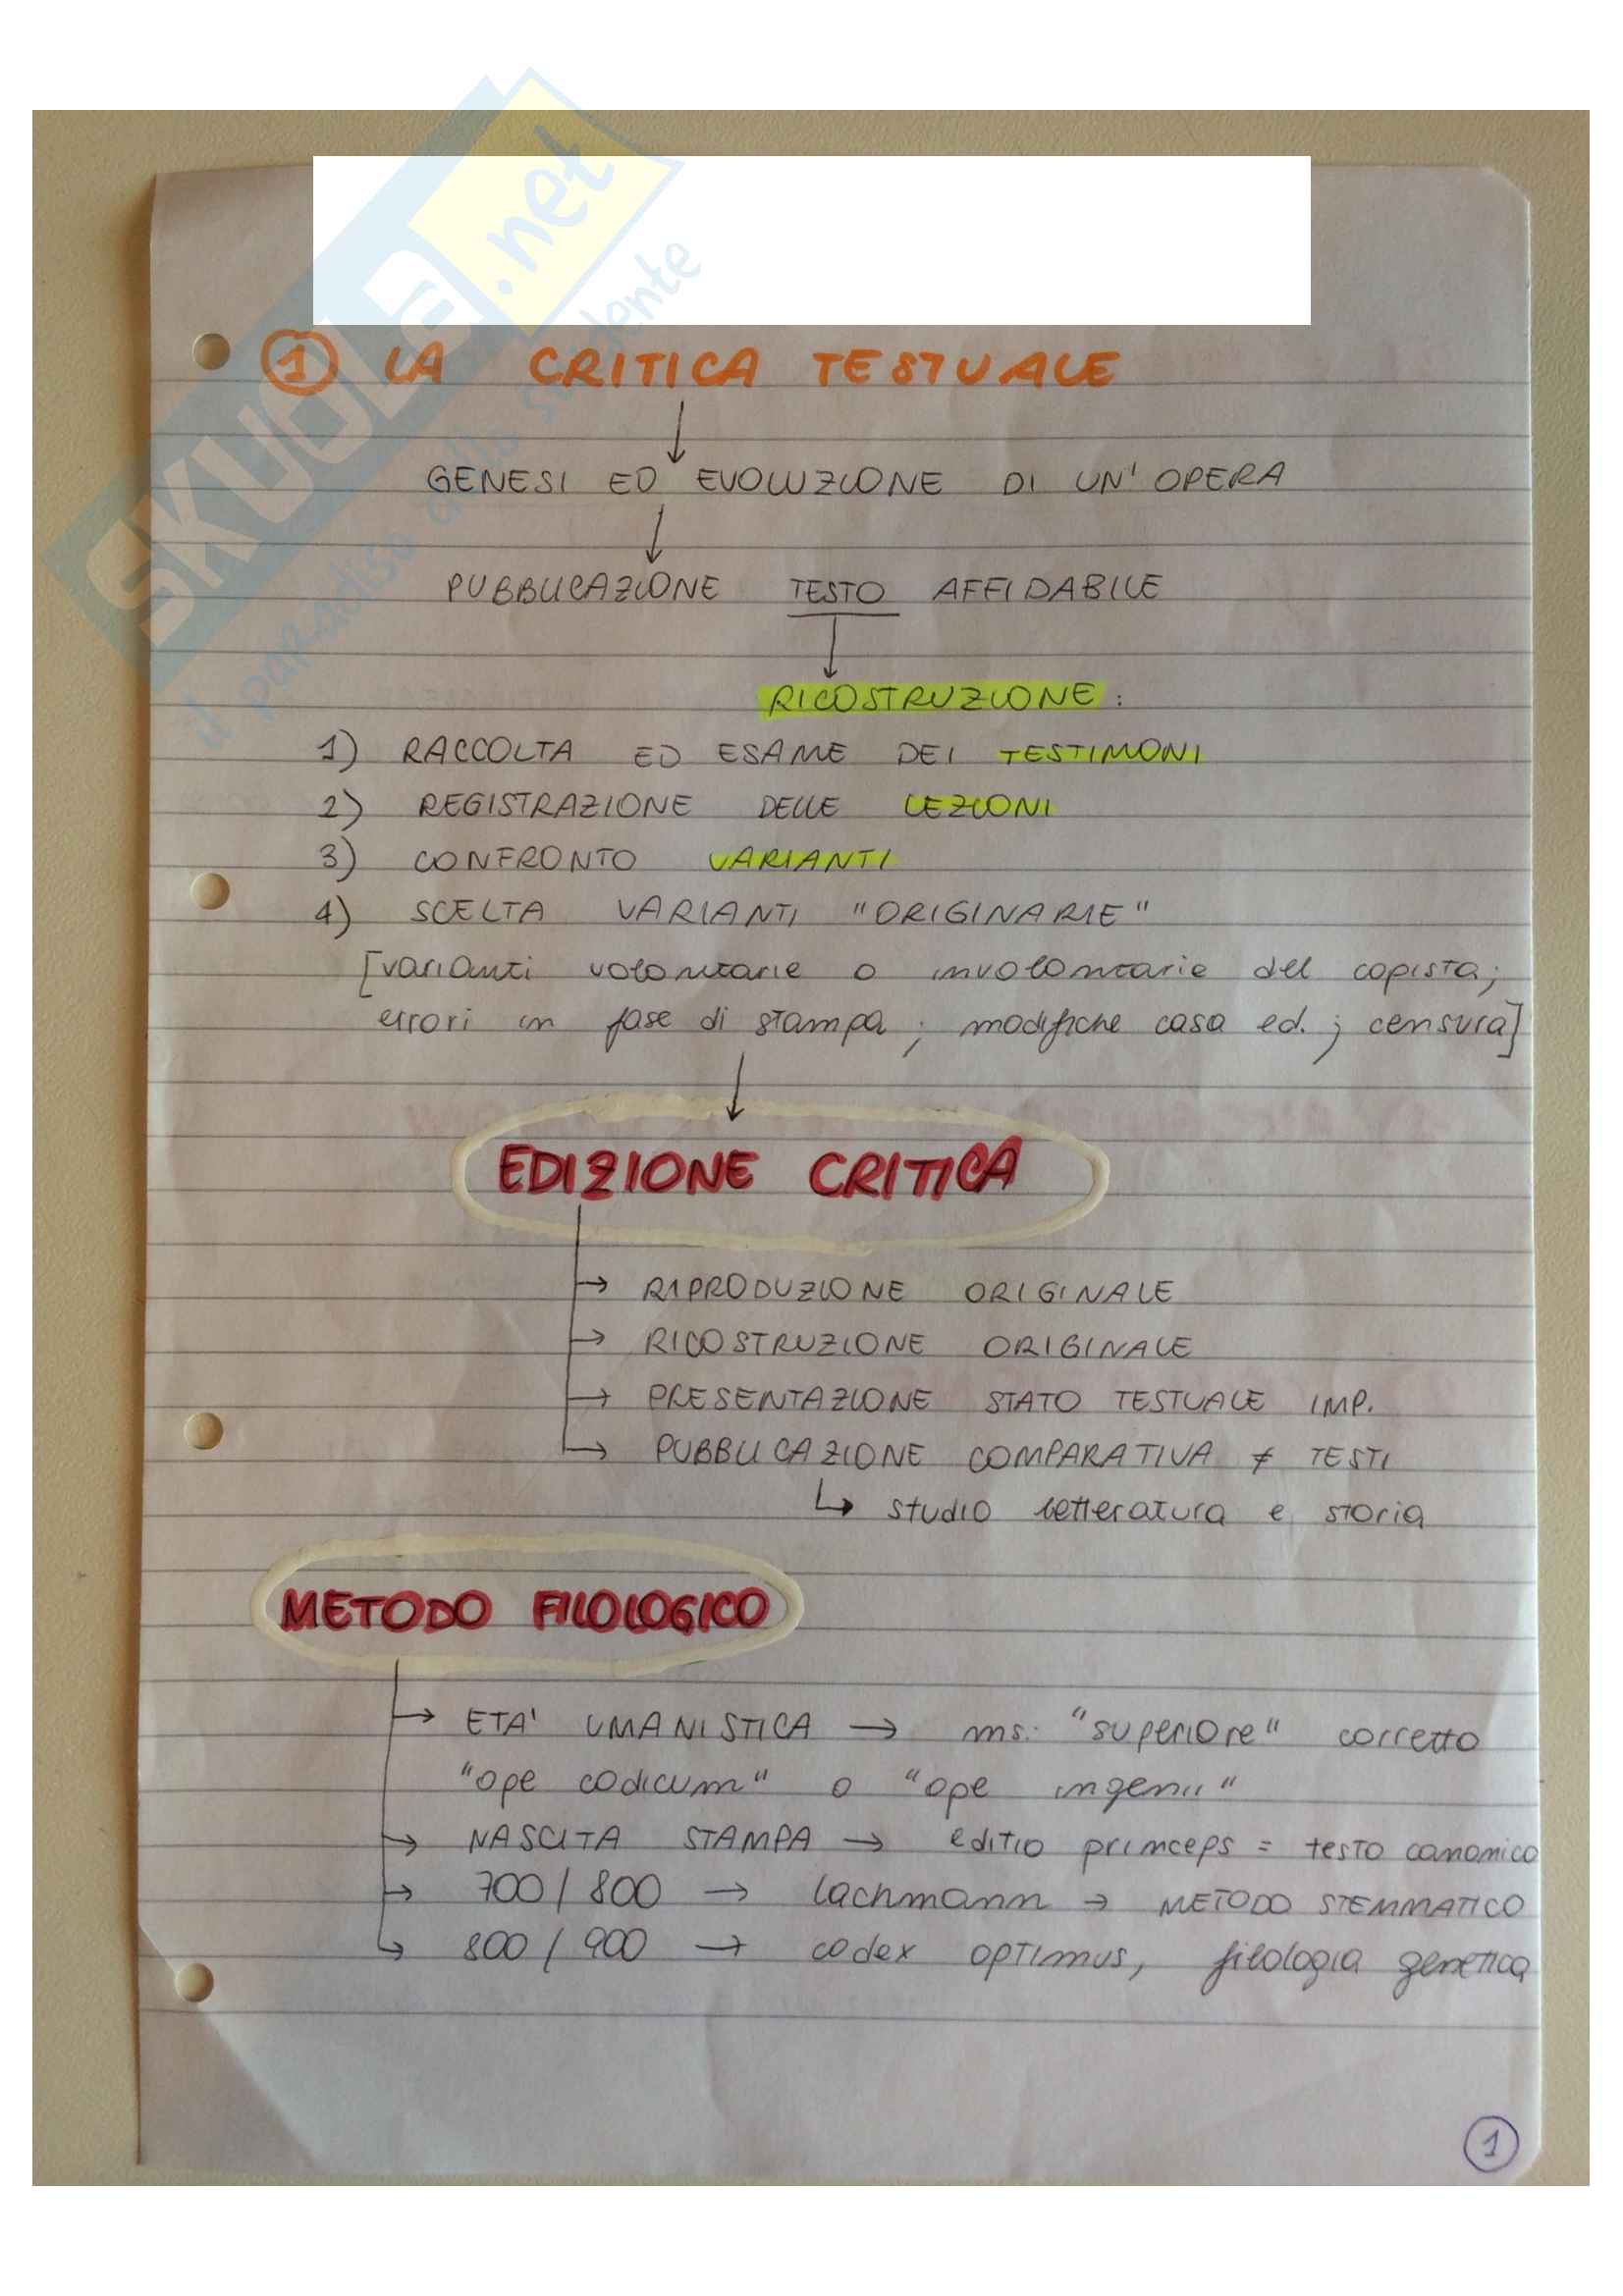 SKUOLA.net
il paradiso dello studente
1 LA CRITICA TESTUALE
↓
GENESI ED EVOLUZIONE DI UN'OPERA
↓
PUBBLICAZIONE TESTO AFFIDABILE
↓
RICOSTRUZIONE:
1) RACCOLTA ED ESAME DEI TESTIMONI
2) REGISTRAZIONE DELLE LEZIONI
3) CONFRONTO VARIANTI
4) SCELTA VARIANTI "ORIGINARIE"
[varianti volontarie o involontarie del copista;
errori in fase di stampa; modifiche casa ed.; censura]
↓
EDIZIONE CRITICA
→ RIPRODUZIONE ORIGINALE
→ RICOSTRUZIONE ORIGINALE
→ PRESENTAZIONE STATO TESTUALE IMP.
→ PUBBLICAZIONE COMPARATIVA ≠ TESTI
↳ studio letteratura e storia
METODO FILOLOGICO
→ ETA' UMANISTICA → ms. "superiore" corretto
"ope codicum" o "ope ingenii"
→ NASCITA STAMPA → editio princeps = testo canonico
→ 700/800 → Lachmann → METODO STEMMATICO
↳ 800/900 → codex optimus, filologia genetica
1